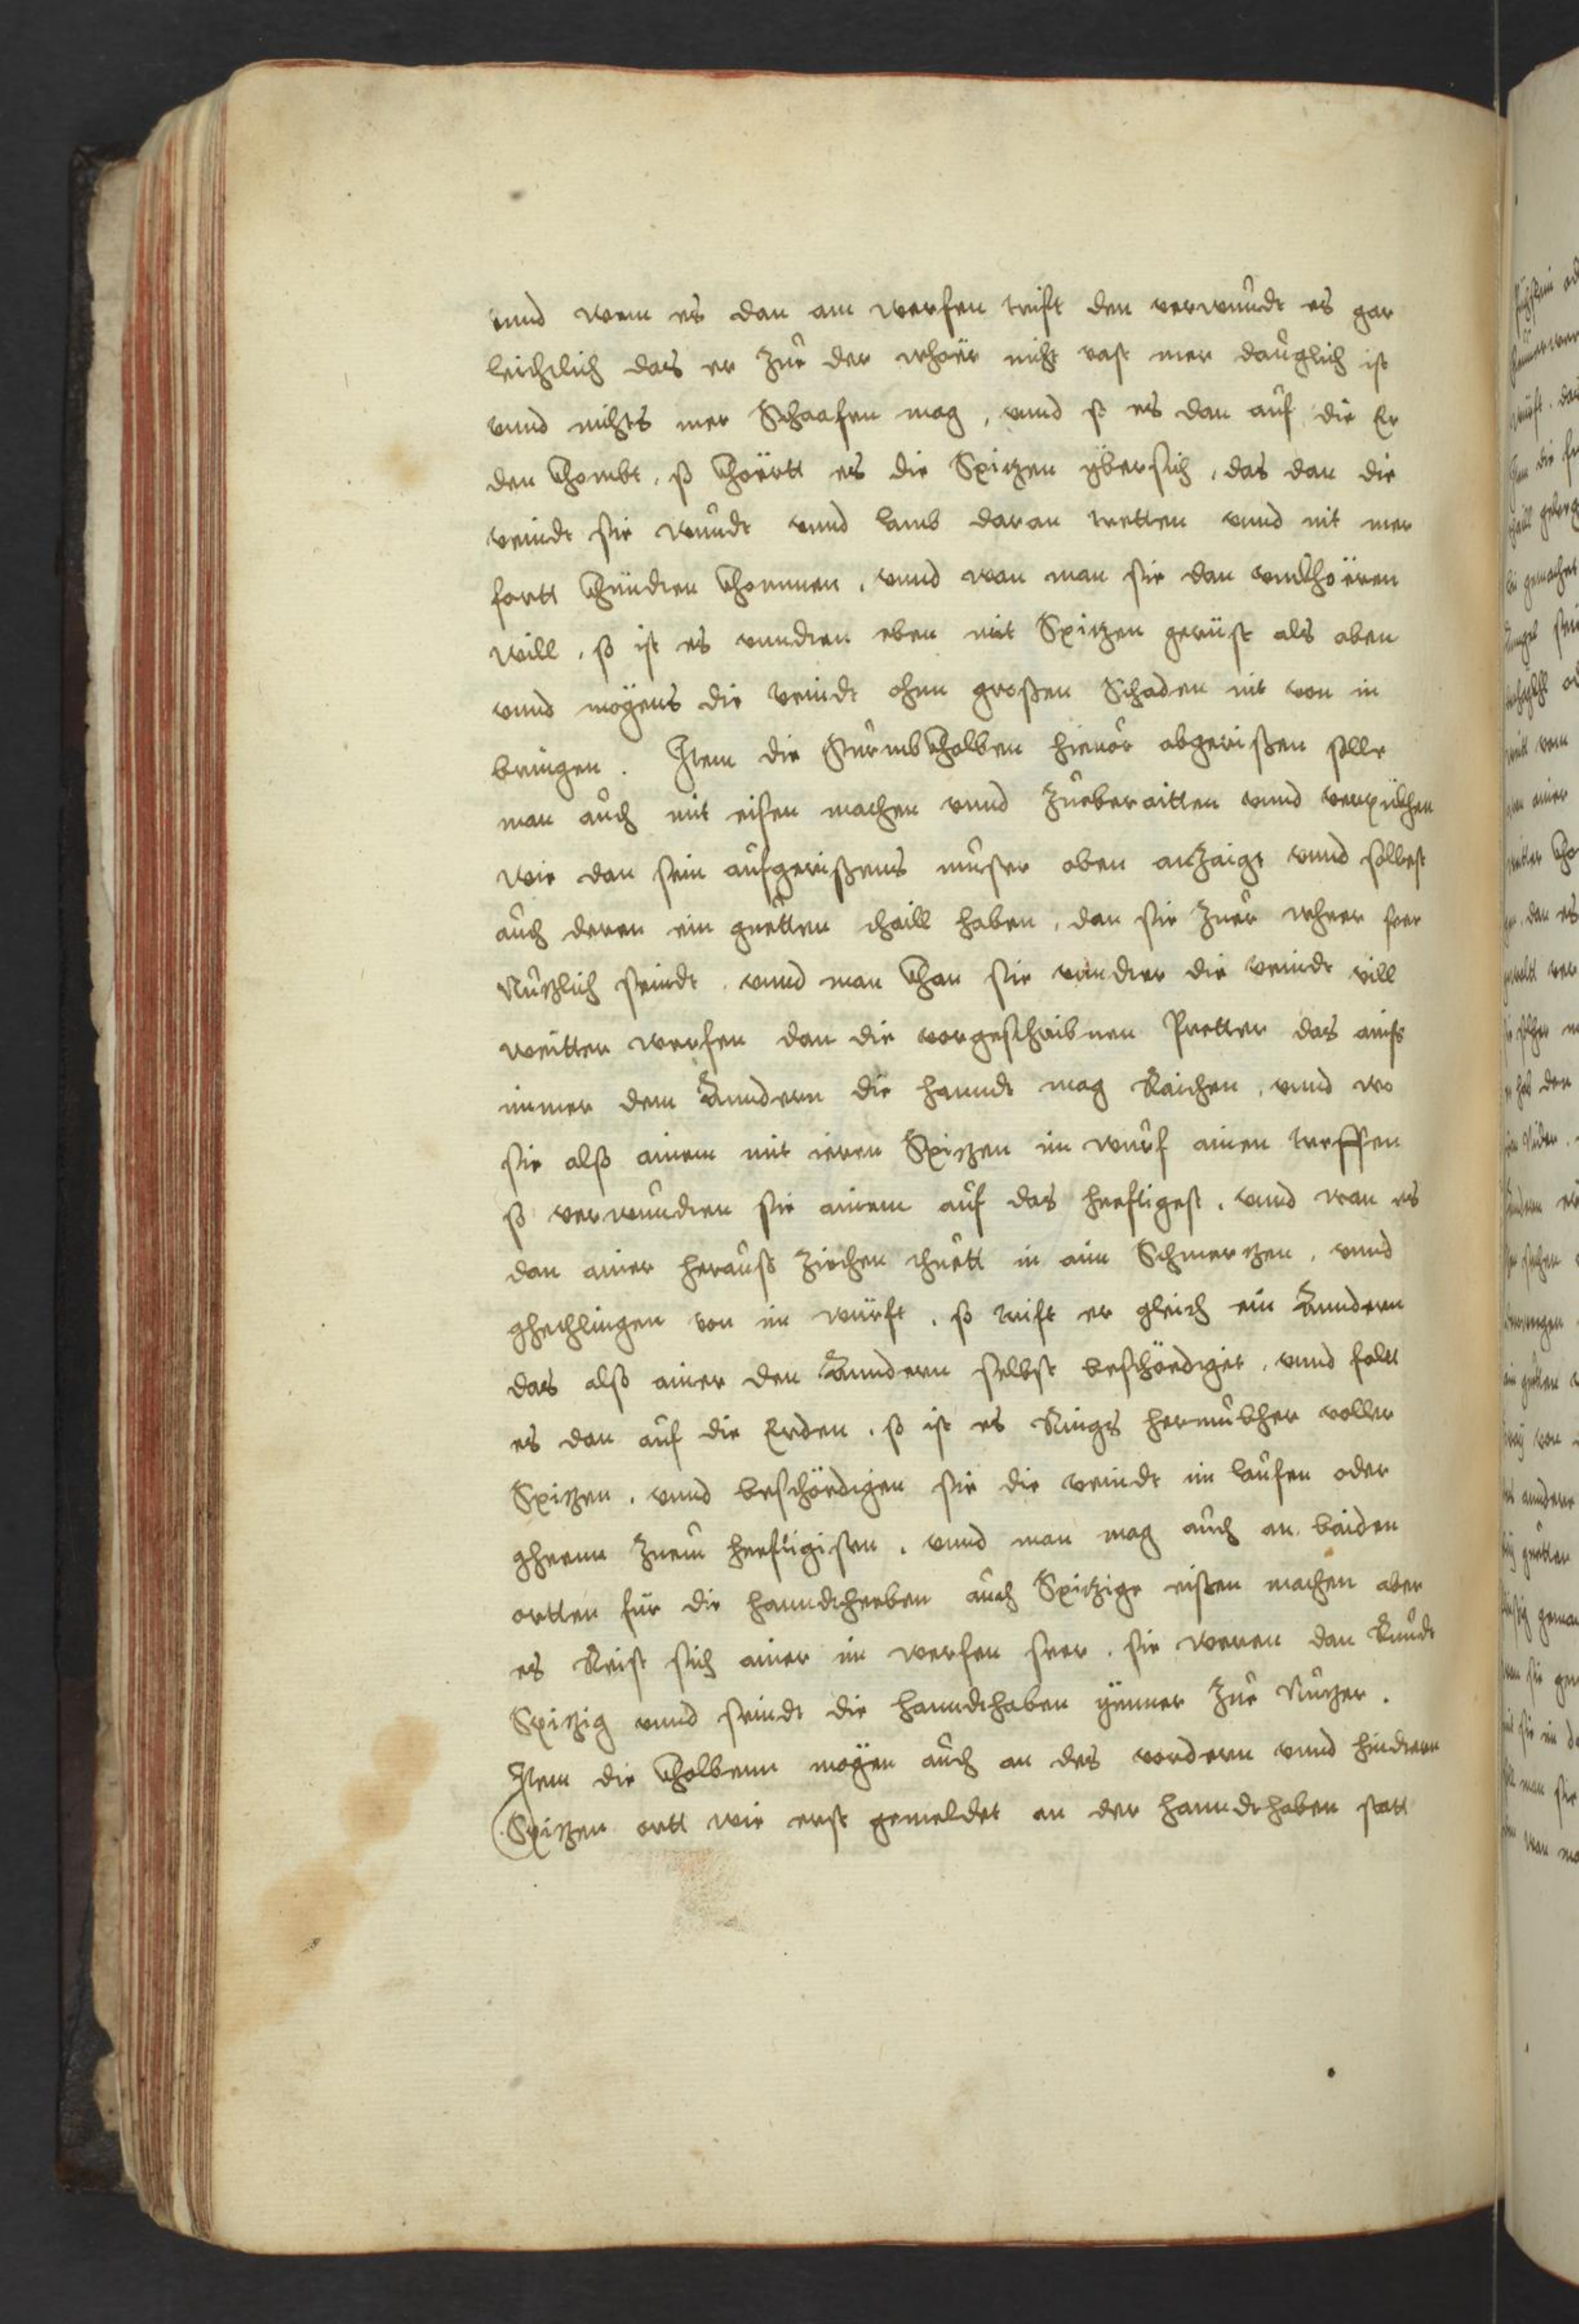 vnnd wem es dan am werfen trift den verwundt es gar
leichtlich das er zur der whöer nicht vast mer dauglich ist
vnnd nichts mer Schaafen mag, vnnd so es dan auf die Er
den khombt, so khöertt es die Spitzen ybersich, das dan die
veindt sie wundt vnnd lamb daran tretten vnnd nit mer
fortt khündten khommen, vnnd wan man sie dan vmbkhöeren
will, so ist es vnndten eben mit Spitzen gerüst als oben
vnnd mögens die veindt ohne großen Schaden nit von in
bringen. Item die Sturmbkholben hieuor abgerißen solle
man auch mit eisen machen vnnd zueberaitten vnnd verpückhen
wie dan sein aufgerißens muster oben anzaigt vnnd sollest
auch deren ein guetten thaill haben, dan sie zuer wheer seer
Nutzlich seindt, vnnd man khan sie vnndter die veindt vill
weitter werfen dan die vorgeschribnen Pretter das ainst
immer dem Anndern die hanndt mag Raichen, vnnd wo
sie alß ainem mit ieren Spitzen im wurf ainen treffen
so verwundten sie ainem auf das heeftigest, vnnd wan es
dan ainer herauß ziechen thuett in aim Schmertzen, vnnd
ghechlingen von im würft, so trift er gleich ein Anndern
das alß ainer den Anndern selbst beschöediget, vnnd falt
es dan auf die Erden, so ist es Rings herumbher voller
Spitzen, vnnd beschöedigen sie die veindt im laufen oder
gheenn zuem heeftigisten, vnnd man mag auch an baiden
ortten für die hanndtheeben auch Spitzige eisten machen aber
es Reist sich ainer im werfen seer, sie weren dan Rundt
Spitzig vnnd seindt die hanndthaben ymmer zur Nutzer.
Item die kholbenn mögen auch an des vordern vnnd hindtern
Spitzen ortt wie erst gemeldet an der hanndthaben statt